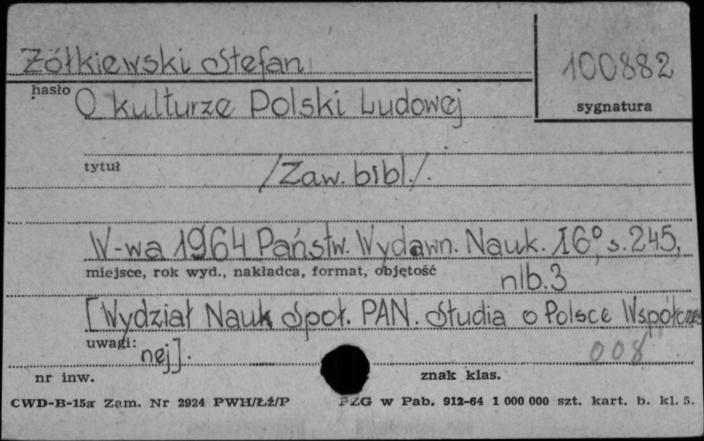 Żółkiewski Stefan
100882
hasło
sygnatura
O kulturze Polski Ludowej
tytuł
/Zaw. bibl./.
W-wa 1964 Państw. Wydawn. Nauk. 16°, s. 245,
miejsce, rok wyd., nakładca, format, objętość
nlb. 3
[Wydział Nauk Społ. PAN. Studia o Polsce Współczes
uwagi:
nej].
008
nr inw.
znak klas.
CWD-B-15a Zam. Nr 2924 PWH/Łź/P PZG w Pab. 912-64 1 000 000 szt. kart. b. kl. 5.